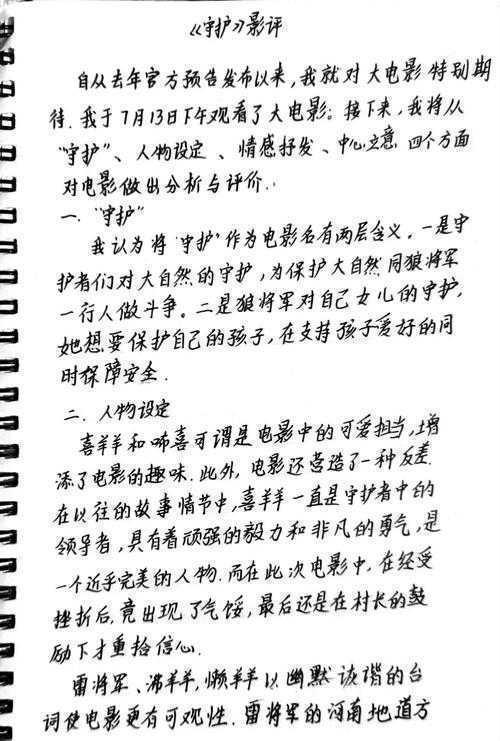 《守护》影评
自从去年官方预告发布以来,我就对大电影特别期
待.我于7月13日下午观看了大电影;接下来,我将从
“守护”、人物设定、情感抒发、中心立意 四个方面
对电影做出分析与评价.
一.“守护”
我认为将“守护”作为电影名有两层含义.一是守
护者们对大自然的守护,为保护大自然同狼将军
一行人做斗争。二是狼将军对自己女儿的守护,
她想要保护自己的孩子,在支持孩子爱好的同
时保障安全.
二.人物设定
喜羊羊和咘喜可谓是电影中的可爱担当,增
添了电影的趣味.此外,电影还营造了一种反差.
在以往的故事情节中,喜羊羊一直是守护者中的
领导者,具有着顽强的毅力和非凡的勇气,是
一个近乎完美的人物.而在此次电影中,在经受
挫折后,竟出现了气馁,最后还是在村长的鼓
励下才重拾信心.
雷将军、沸羊羊,懒羊羊以幽默诙谐的台
词使电影更有可观性.雷将军的河南地道方